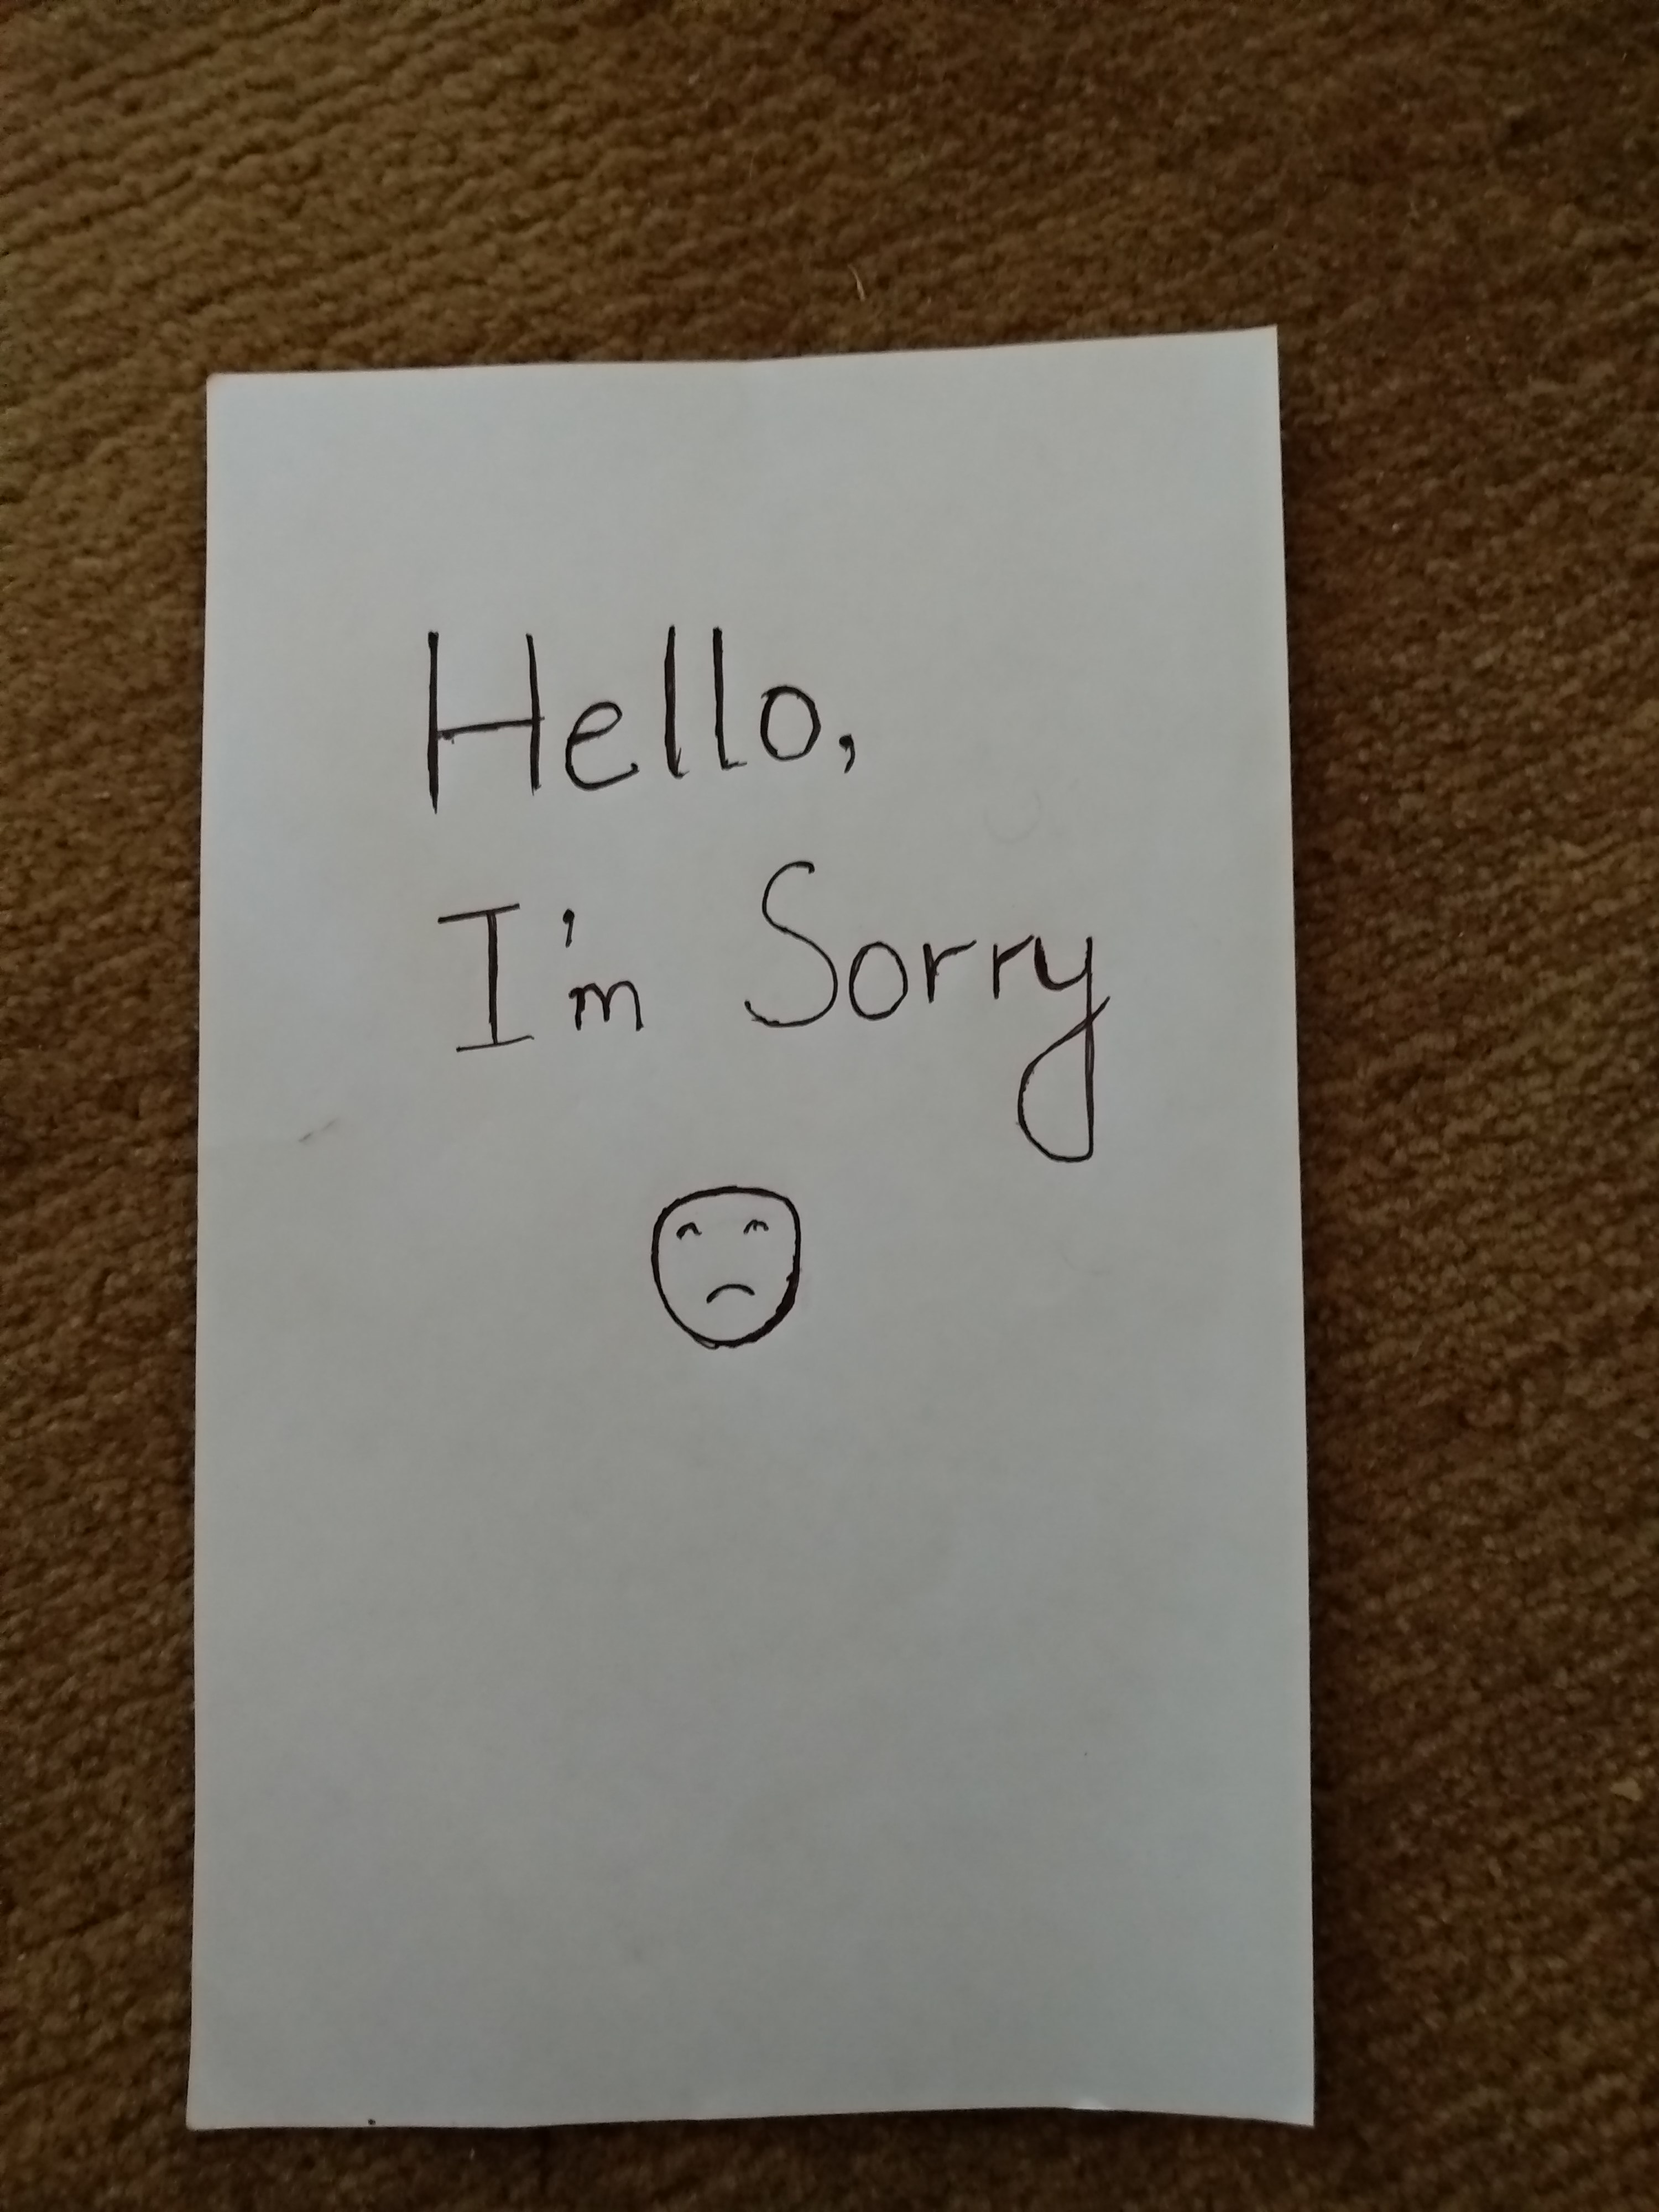 Hello,
I'm Sorry